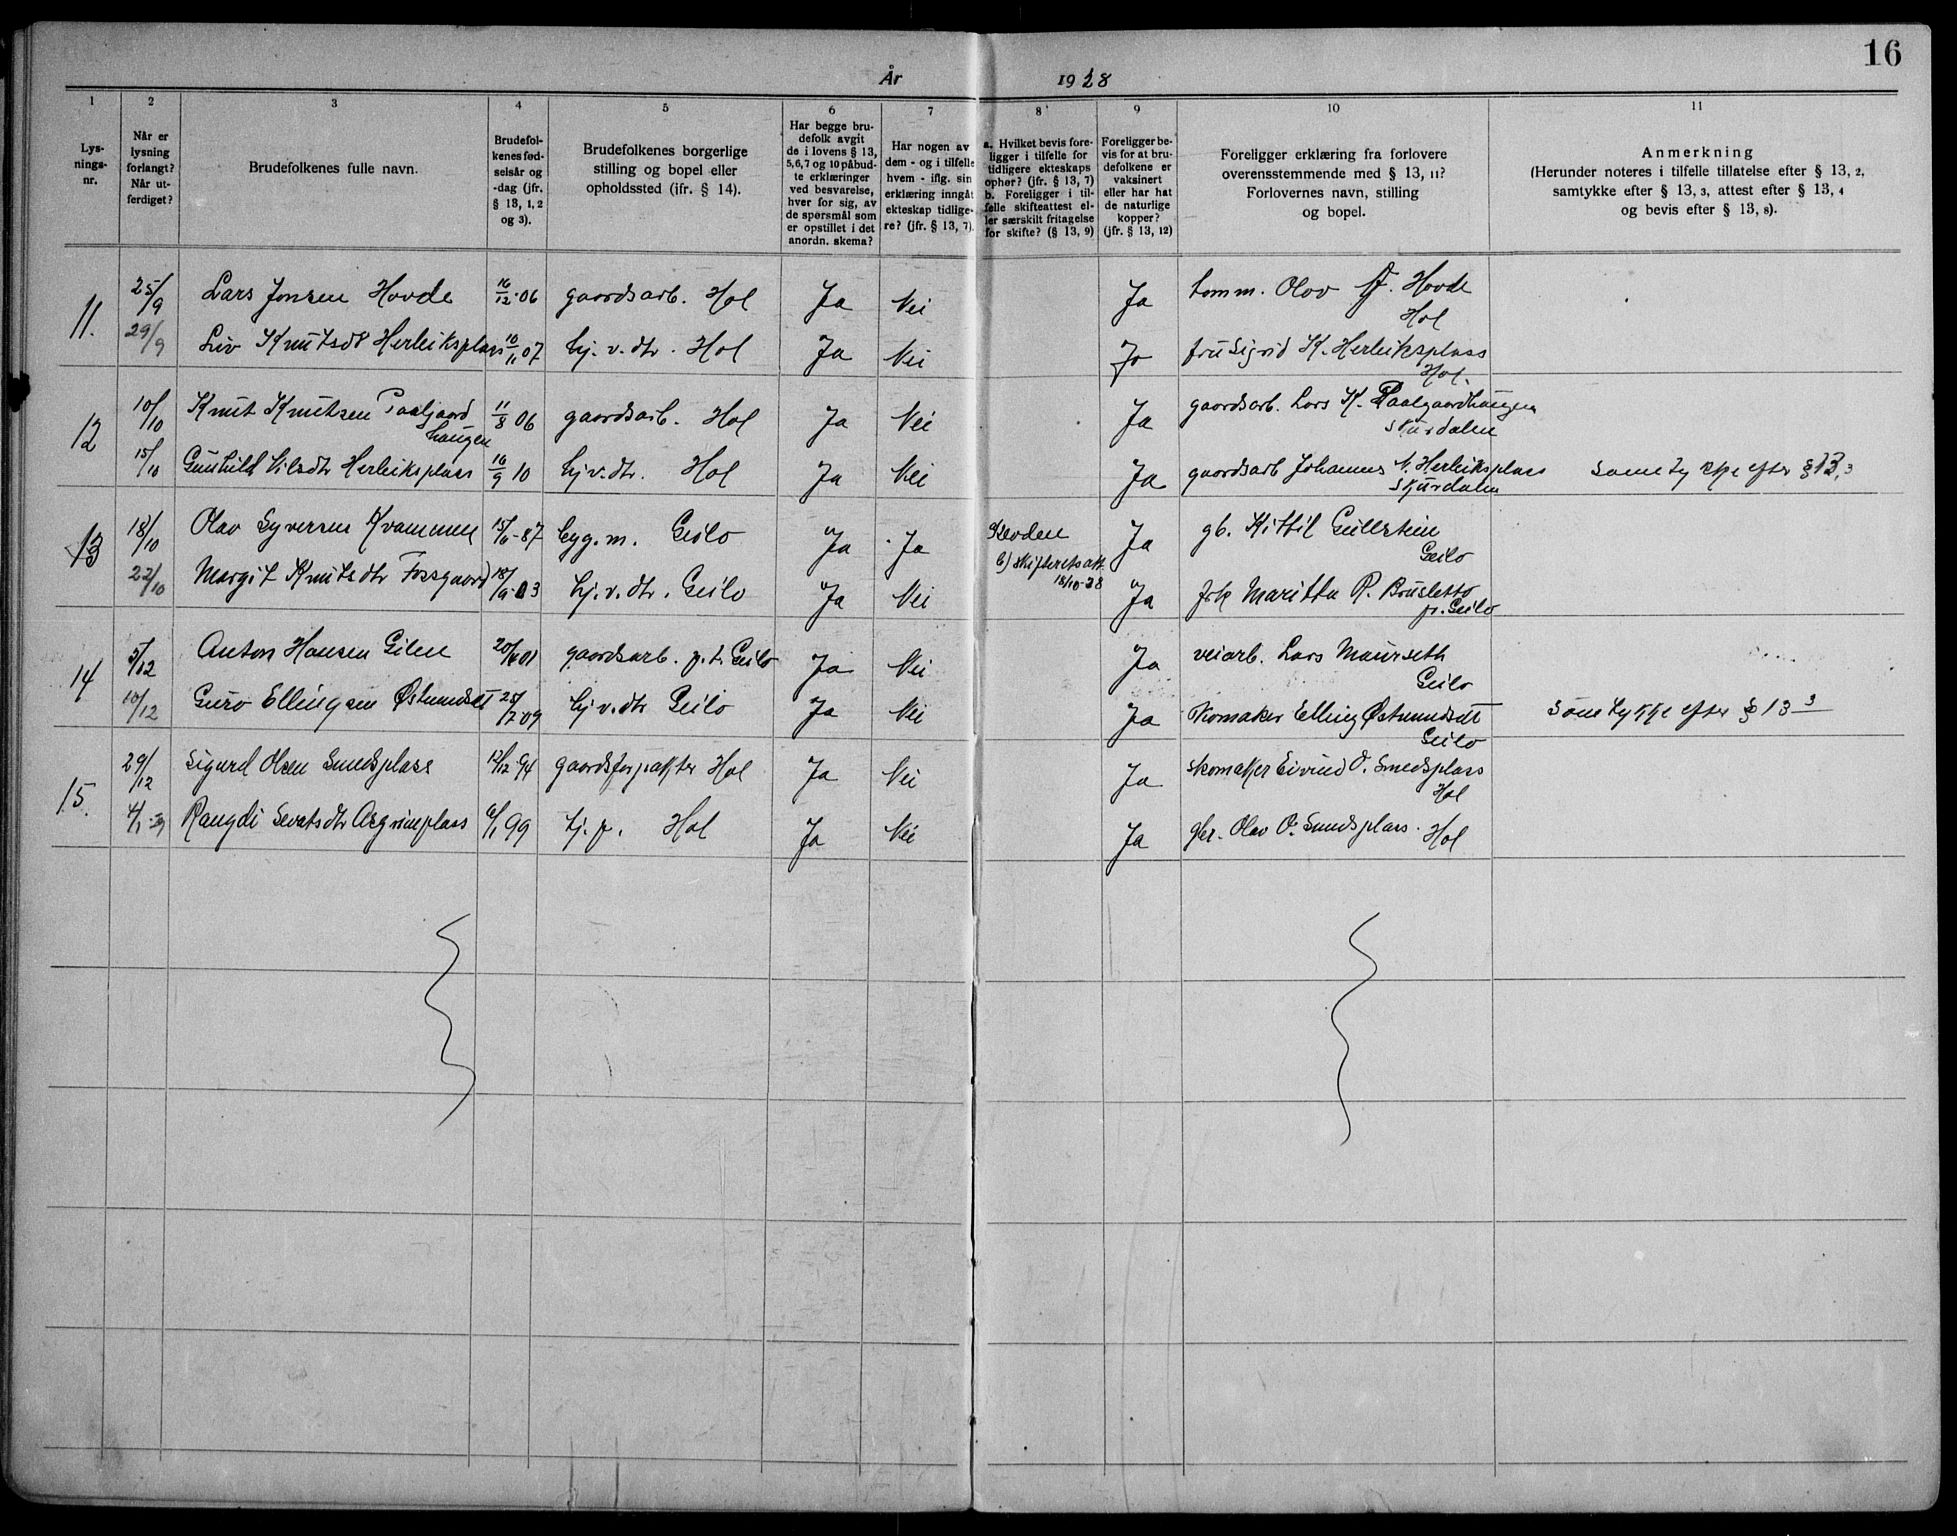 16
År 1928
1 2 3 4 5 6 7 8 9 10 11
Lys-
nings-
nr.
Når er
lysning
forlangt?
Når ut-
ferdiget?
Brudefolkenes fulle navn.
Brudefol-
kenes fød-
selsår og
-dag (jfr.
§ 13, 1, 2
og 3).
Brudefolkenes borgerlige
stilling og bopel eller
opholdssted (jfr. § 14).
Har begge bru-
defolk avgit
de i lovens § 13,
5,6,7 og 10 påbud-
te erklæringer
ved besvarelse,
hver for sig, av
de spørsmål som
er opstillet i det
anordn. skema?
Har nogen av
dem - og i tilfelle
hvem - iflg. sin
erklæring inngåt
ekteskap tidlige-
re? (jfr. § 13, 7).
a. Hvilket bevis fore-
ligger i tilfelle for
tidligere ekteskaps
ophør? (jfr. § 13, 7)
b. Foreligger i til-
felle skifteattest el-
ler særskilt fritagelse
for skifte? (§ 13, 9)
Foreligger be-
vis for at bru-
defolkene er
vaksinert
eller har hat
de naturlige
kopper?
(jfr. § 13, 12)
Foreligger erklæring fra forlovere
overensstemmende med § 13, 11?
Forlovernes navn, stilling
og bopel.
Anmerkning
(Herunder noteres i tilfelle tillatelse efter § 13, 2,
samtykke efter § 13, 3, attest efter § 13, 4
og bevis efter § 13, 8).
11. 25/9 Lars Jonsen Hovde 16/12-06 gaardsarb. Hol Ja Nei Ja tomm. Olav J. Hovde
Hol
29/9 Liv Knutsdt Herleiksplass 10/11 07 hj.v.dtr. Hol Ja Nei Ja fru Sigrid K. Herleiksplass
Hol.
12 10/10 Knut Knutsen Paalgaard
haugen 11/8 06 gaardsarb. Hol Ja Nei Ja gaardsarb. Lars K. Paalgaardhaugen
Skurdalen
15/10 Gunhild Nilsdtr Herleiksplass 16/9 10 hj.v.dtr. Hol Ja Nei Ja gaardsarb Johannes N. Herleiksplass Samtykke efter § 13, 3
Skurdalen
13 18/10 Olav Syversen Kvammen 15/6-87 byg.m. Geilo Ja Ja Ja gb. Kittil Geilestein
Geilo
b) skifteretsatt.
18/10-28
22/10 Margit Knutsdtr Fossgaard 18/9-03 hj.v.dtr. Geilo Ja Nei Ja frk Maritta R. Brusletto
p. Geilo
14 5/12 Anton Hansen Gilen gaardsarb. p.t. Geilo Ja Nei Ja veiarb. Lars Maurseth
Geilo
10/12 Guro Ellingsen Østenmdset 25/7-09 hj.v.dtr Geilo Ja Nei Ja skomaker Elling Østenmdset Samtykke efter § 13 3
Geilo
15. 29/12 Sigurd Olsen Smedsplass 12/12 94 gaardsforpakter Hol Ja Nei Ja skomaker Eivind O. Smedsplass
Hol
4/1-29 Rangdi Sevatsdtr Asgrimplass 6/1 99 tj.p. Hol Ja Nei Ja gbr. Olav O. Smedsplass. Hol